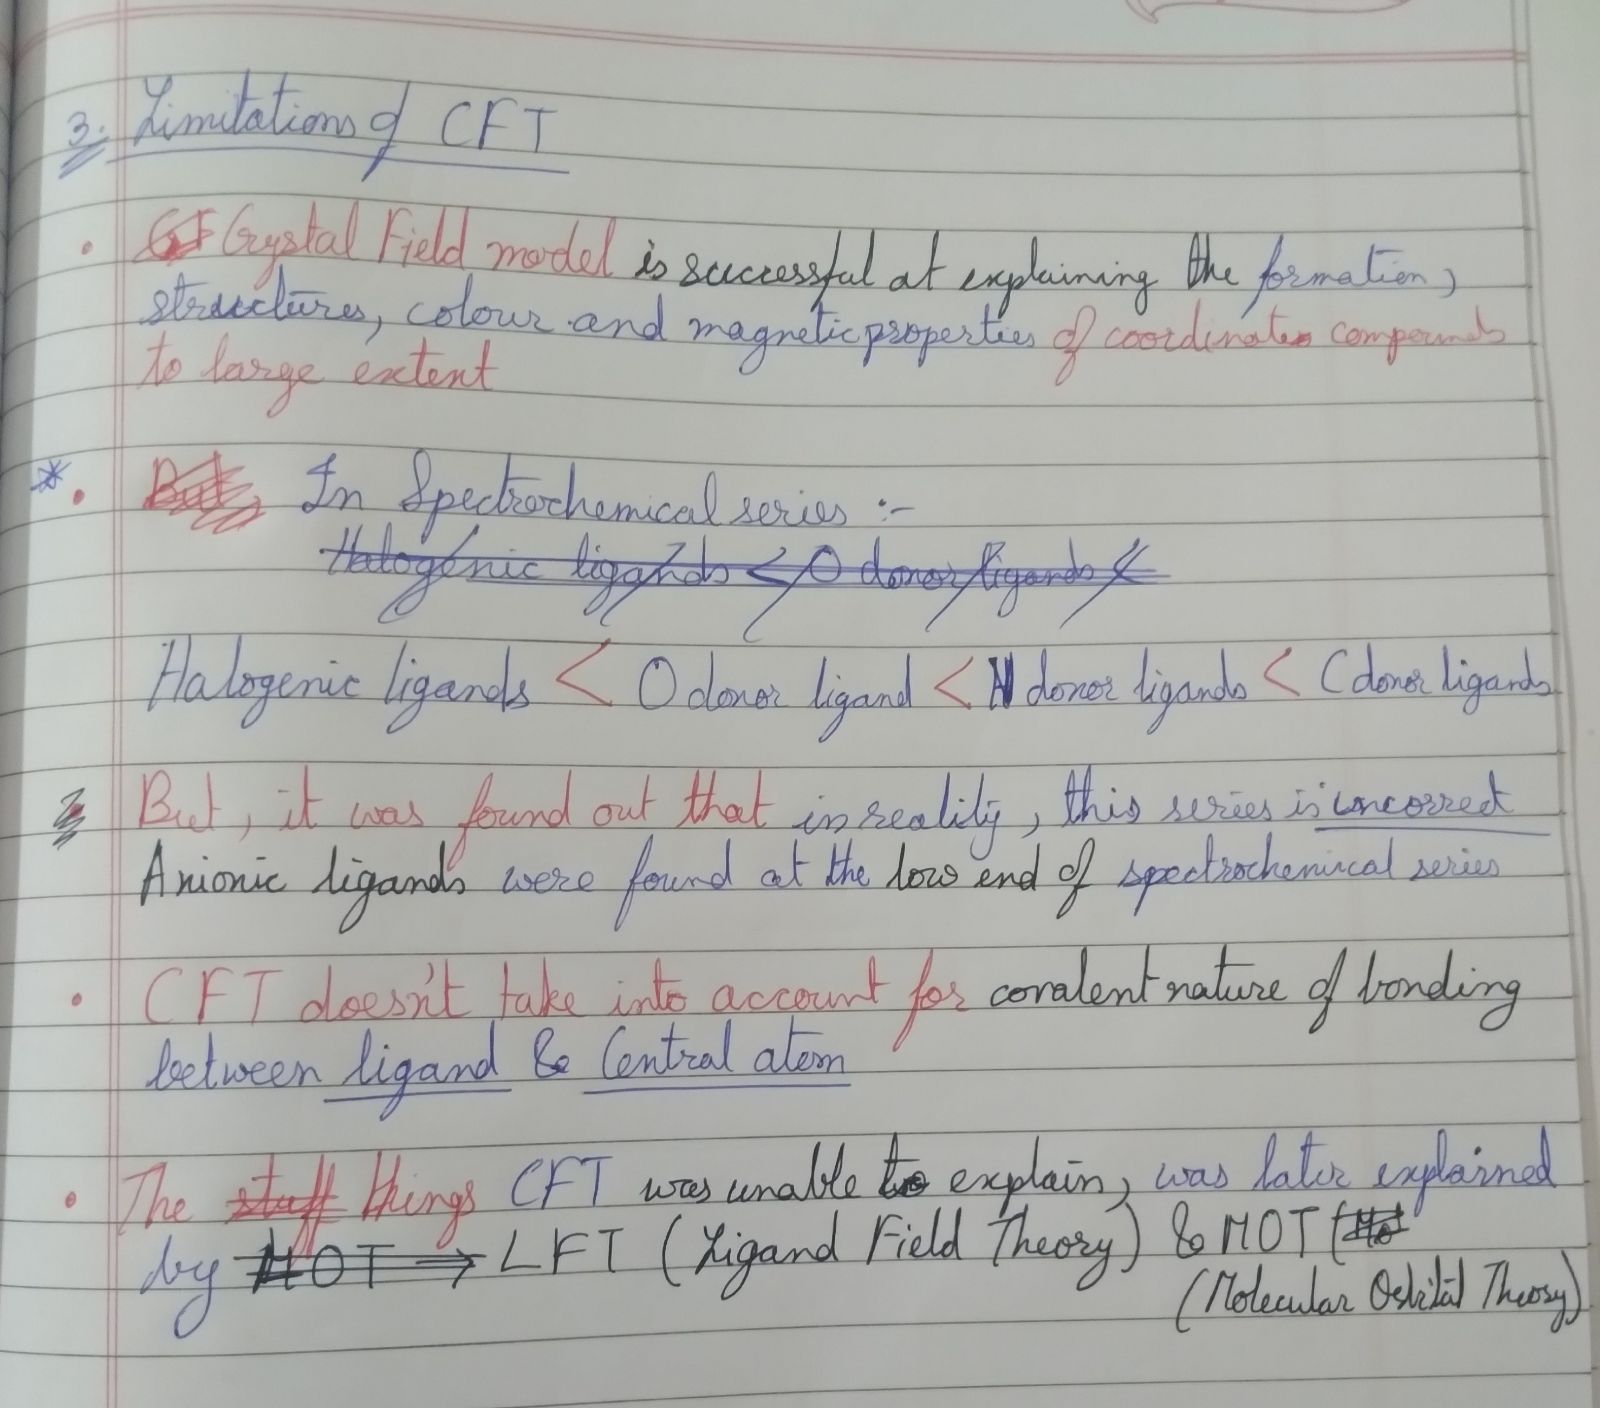 3. Limitations of CFT
• Crystal Field model is successful at explaining the formation,
structures, colour and magnetic properties of coordinates compounds
to large extent
* • But, In Spectrochemical series :-
Halogenic ligands < O donor ligands <
Halogenic ligands < O donor ligand < N donor ligands < C donor ligands
But, it was found out that in reality, this series is incorrect
Anionic ligands were found at the low end of spectrochemical series
• CFT doesn't take into account for covalent nature of bonding
between ligand & Central atom
• The stuff things CFT was unable to explain, was later explained
by MOT → LFT (Ligand Field Theory) & MOT (
(Molecular Orbital Theory)